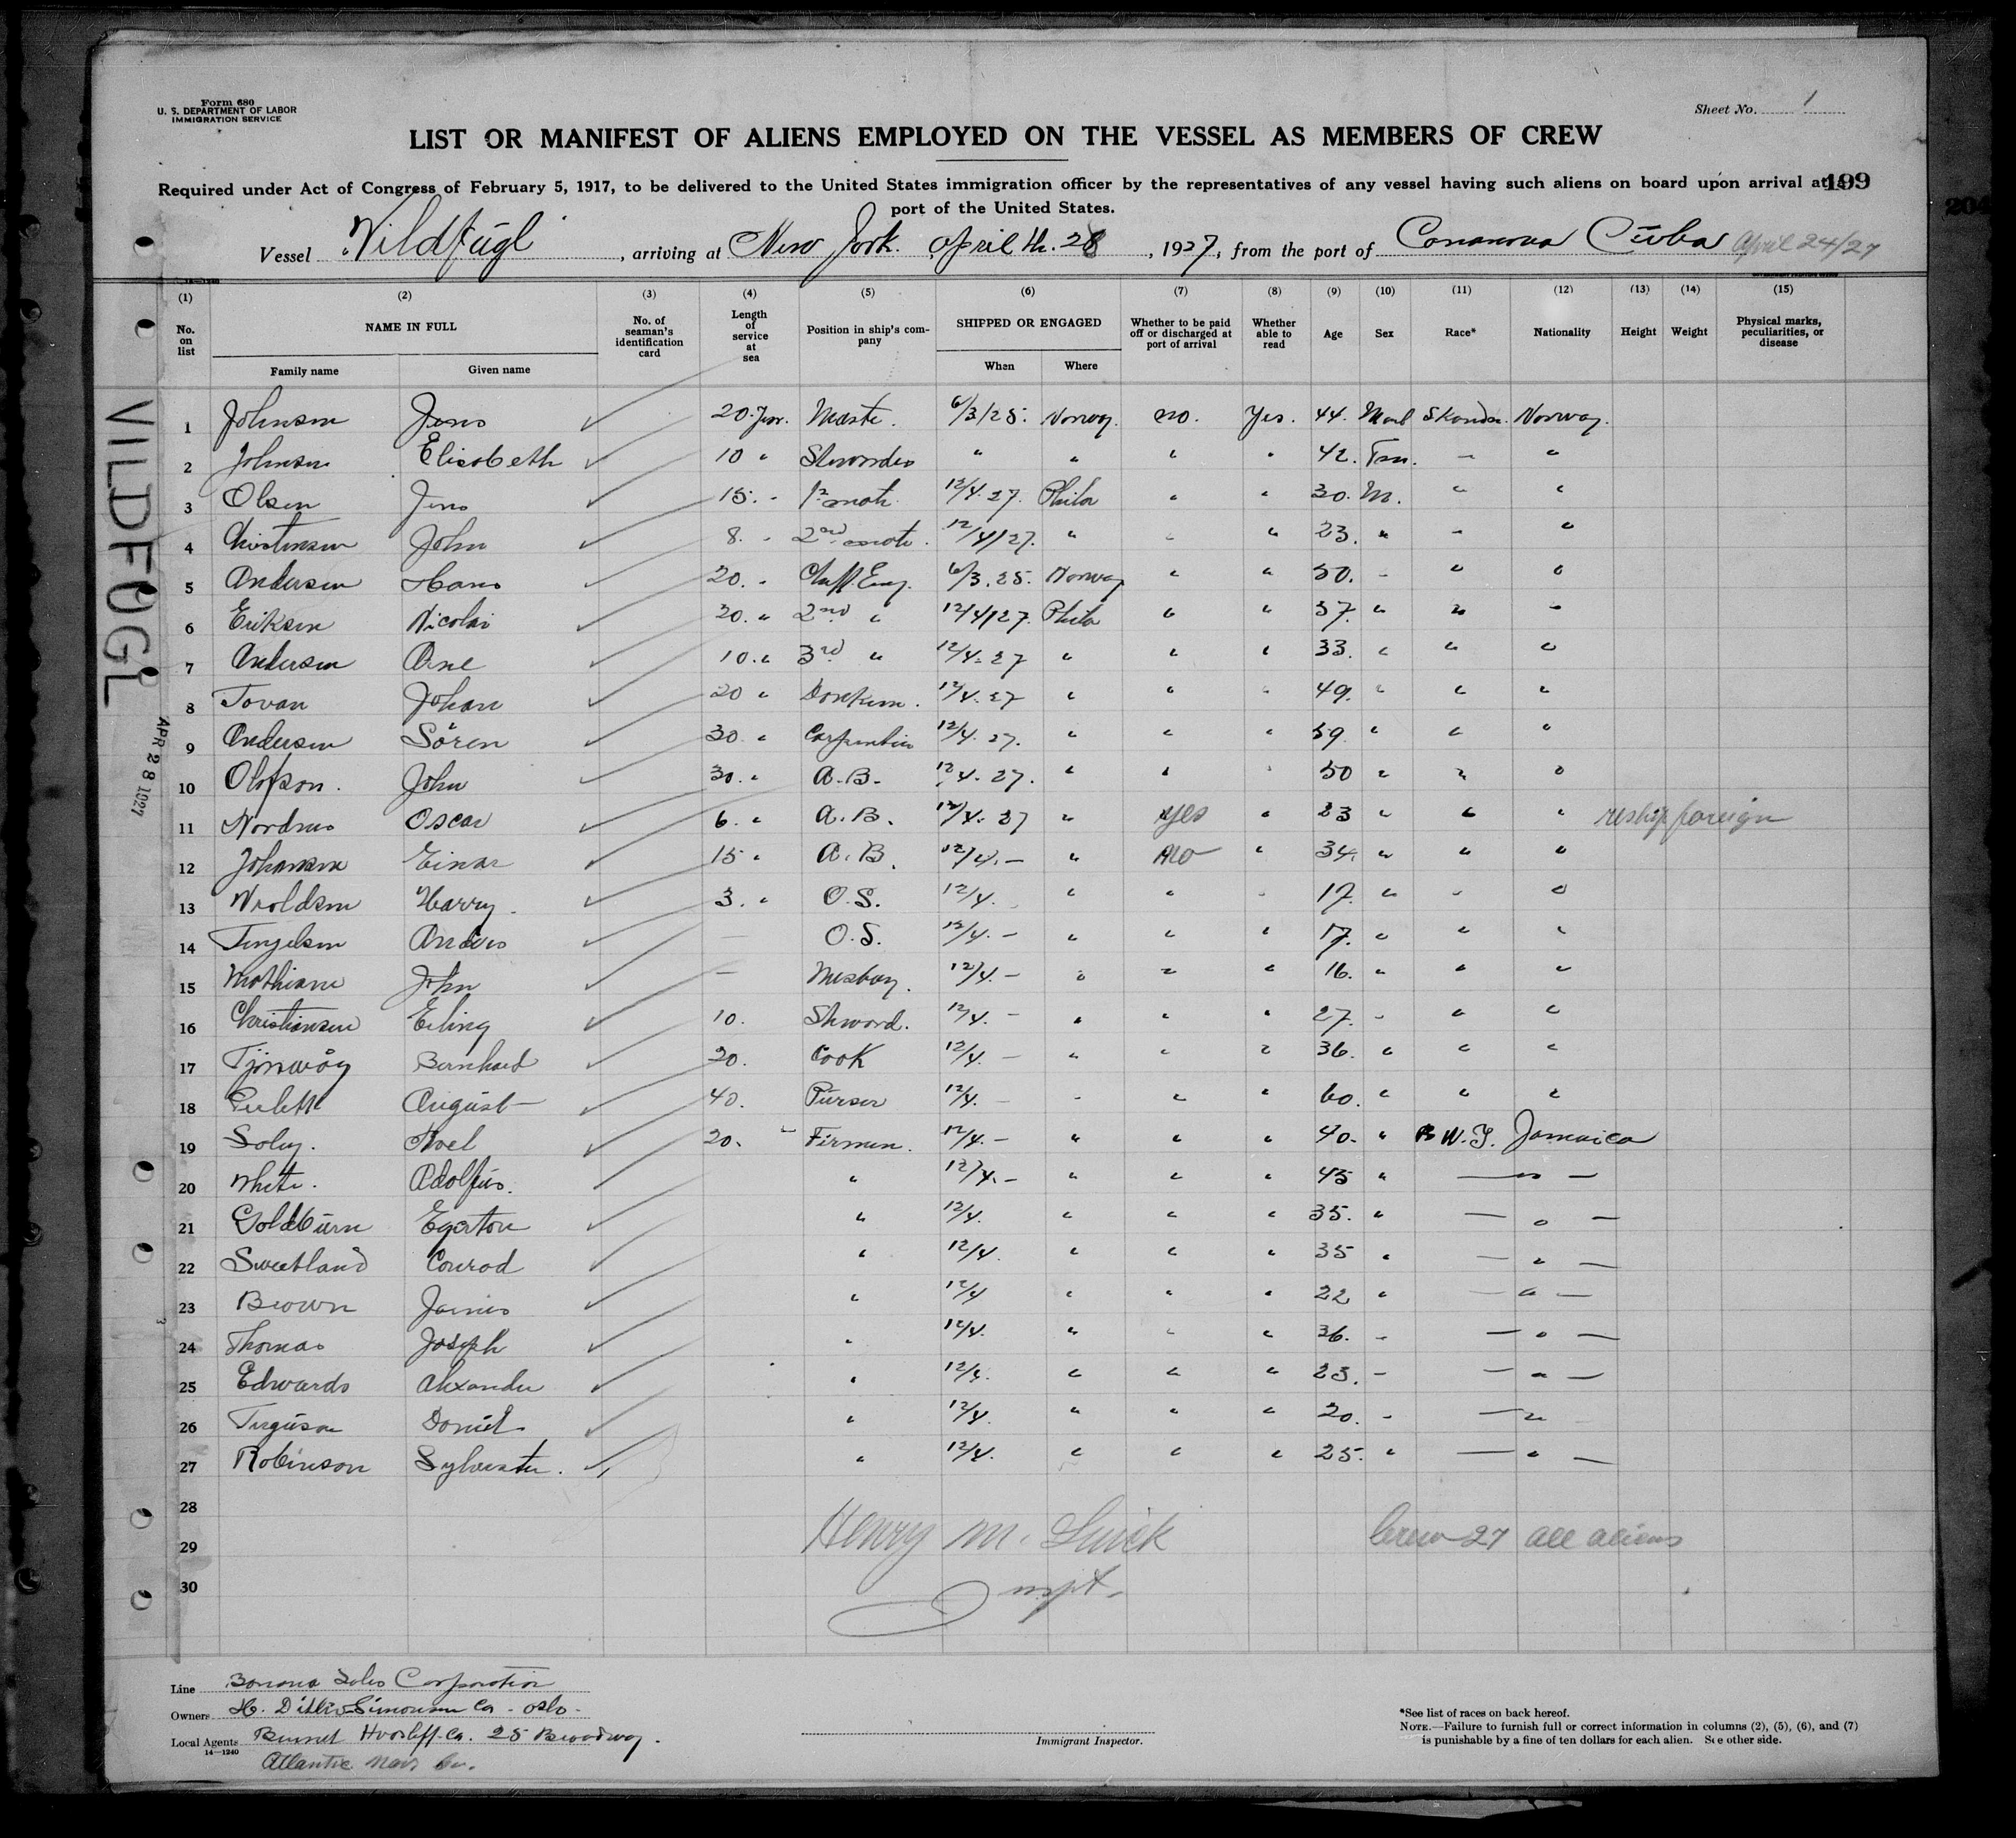 Form 680
U. S. DEPARTMENT OF LABOR
IMMIGRATION SERVICE
Sheet No. 1
LIST OR MANIFEST OF ALIENS EMPLOYED ON THE VESSEL AS MEMBERS OF CREW
Required under Act of Congress of February 5, 1917, to be delivered to the United States immigration officer by the representatives of any vessel having such aliens on board upon arrival at a
port of the United States.
199
204
Vessel Vildfugl, arriving at New York. April th. 28, 1927, from the port of Cuba April 24/27
(1) (2) (3) (4) (5) (6) (7) (8) (9) (10) (11) (12) (13) (14) (15)
No. on list NAME IN FULL Family name Given name No. of seaman's identification card Length of service at sea Position in ship's company SHIPPED OR ENGAGED When Where Whether to be paid off or discharged at port of arrival Whether able to read Age Sex Race* Nationality Height Weight Physical marks, peculiarities, or disease
VILDFUGL
APR 28 1927
1 Johnsen Jens 20 Maste. 6/3/25. Norway. no. Yes. 44. Skandn. Norway.
2 Johnsen Elisabeth 10 " " " " " 42. Fem. - "
3 Olsen Jens 15. - 12/4.27. Phila " " 30. M. " "
4 Christensen John 8. - 2nd mate. 12/4/27. " " " 23. " - "
5 Andersen Hans 20. - Chiff. Eng. 6/3.25. Norway " " 50. - " "
6 Eriksen Nicolai 30. " 2nd " 12/4/27. Phila " " 37. " " "
7 Andersen Arne 10. " 3rd " 12/4.27 " " " 33. " " "
8 Tovan Johan 20 " Donkem. 12/4.27 " " " 49. " " "
9 Andersen Sören 30 " 12/4.27. " " " 59. " " "
10 Olofson. John 30. " A.B. 12/4.27. " " " 50 " " "
11 Oscar 6. " A.B. 12/4.27 " yes " 23 " " " reship foreign
12 Johansen Einar 15 " A.B. 12/4.- " no " 34. " " "
13 Harry 3. " O.S. 12/4. " " " 17. " " "
14 Anders - O.S. 12/4.- " " " 17. " " "
15 John - Mesboy. 12/4.- " " " 16. " " "
16 Christiansen Erling 10. Steword. 12/4.- " " " 27. " " "
17 Bernhard 20. Cook 12/4.- " " " 36. " " "
18 August 40. Purser 12/4.- " " " 60. " " "
19 Noel 20. " Firmen. 12/4.- " " " 40. " B.W.I. Jamaica
20 White. Adolfus. " 12/4.- " " " 45 " — " —
21 Goldburn Egerton " 12/4. " " " 35. " — " —
22 Sweetland Conrad " 12/4. " " " 35 " — " —
23 Brown James " 12/4 " " " 22 " — " —
24 Thomas Joseph " 12/4. " " " 36. - — " —
25 Edwards Alexander " 12/4. " " " 23. - — " —
26 Ferguson Daniel " 12/4. " " " 20. - — "
27 Robinson Sylvester. " 12/4. " " " 25. " — " —
28
29 Henry M. Crew 27 all aliens
30 Inspt.
Line Banana Sales Corporation
Owners H. Ditlev Simonsen Co - Oslo -
Local Agents Co. 25 Broadway.
14—1240
Atlantic Nav. Co.
Immigrant Inspector.
*See list of races on back hereof.
NOTE.—Failure to furnish full or correct information in columns (2), (5), (6), and (7)
is punishable by a fine of ten dollars for each alien. See other side.